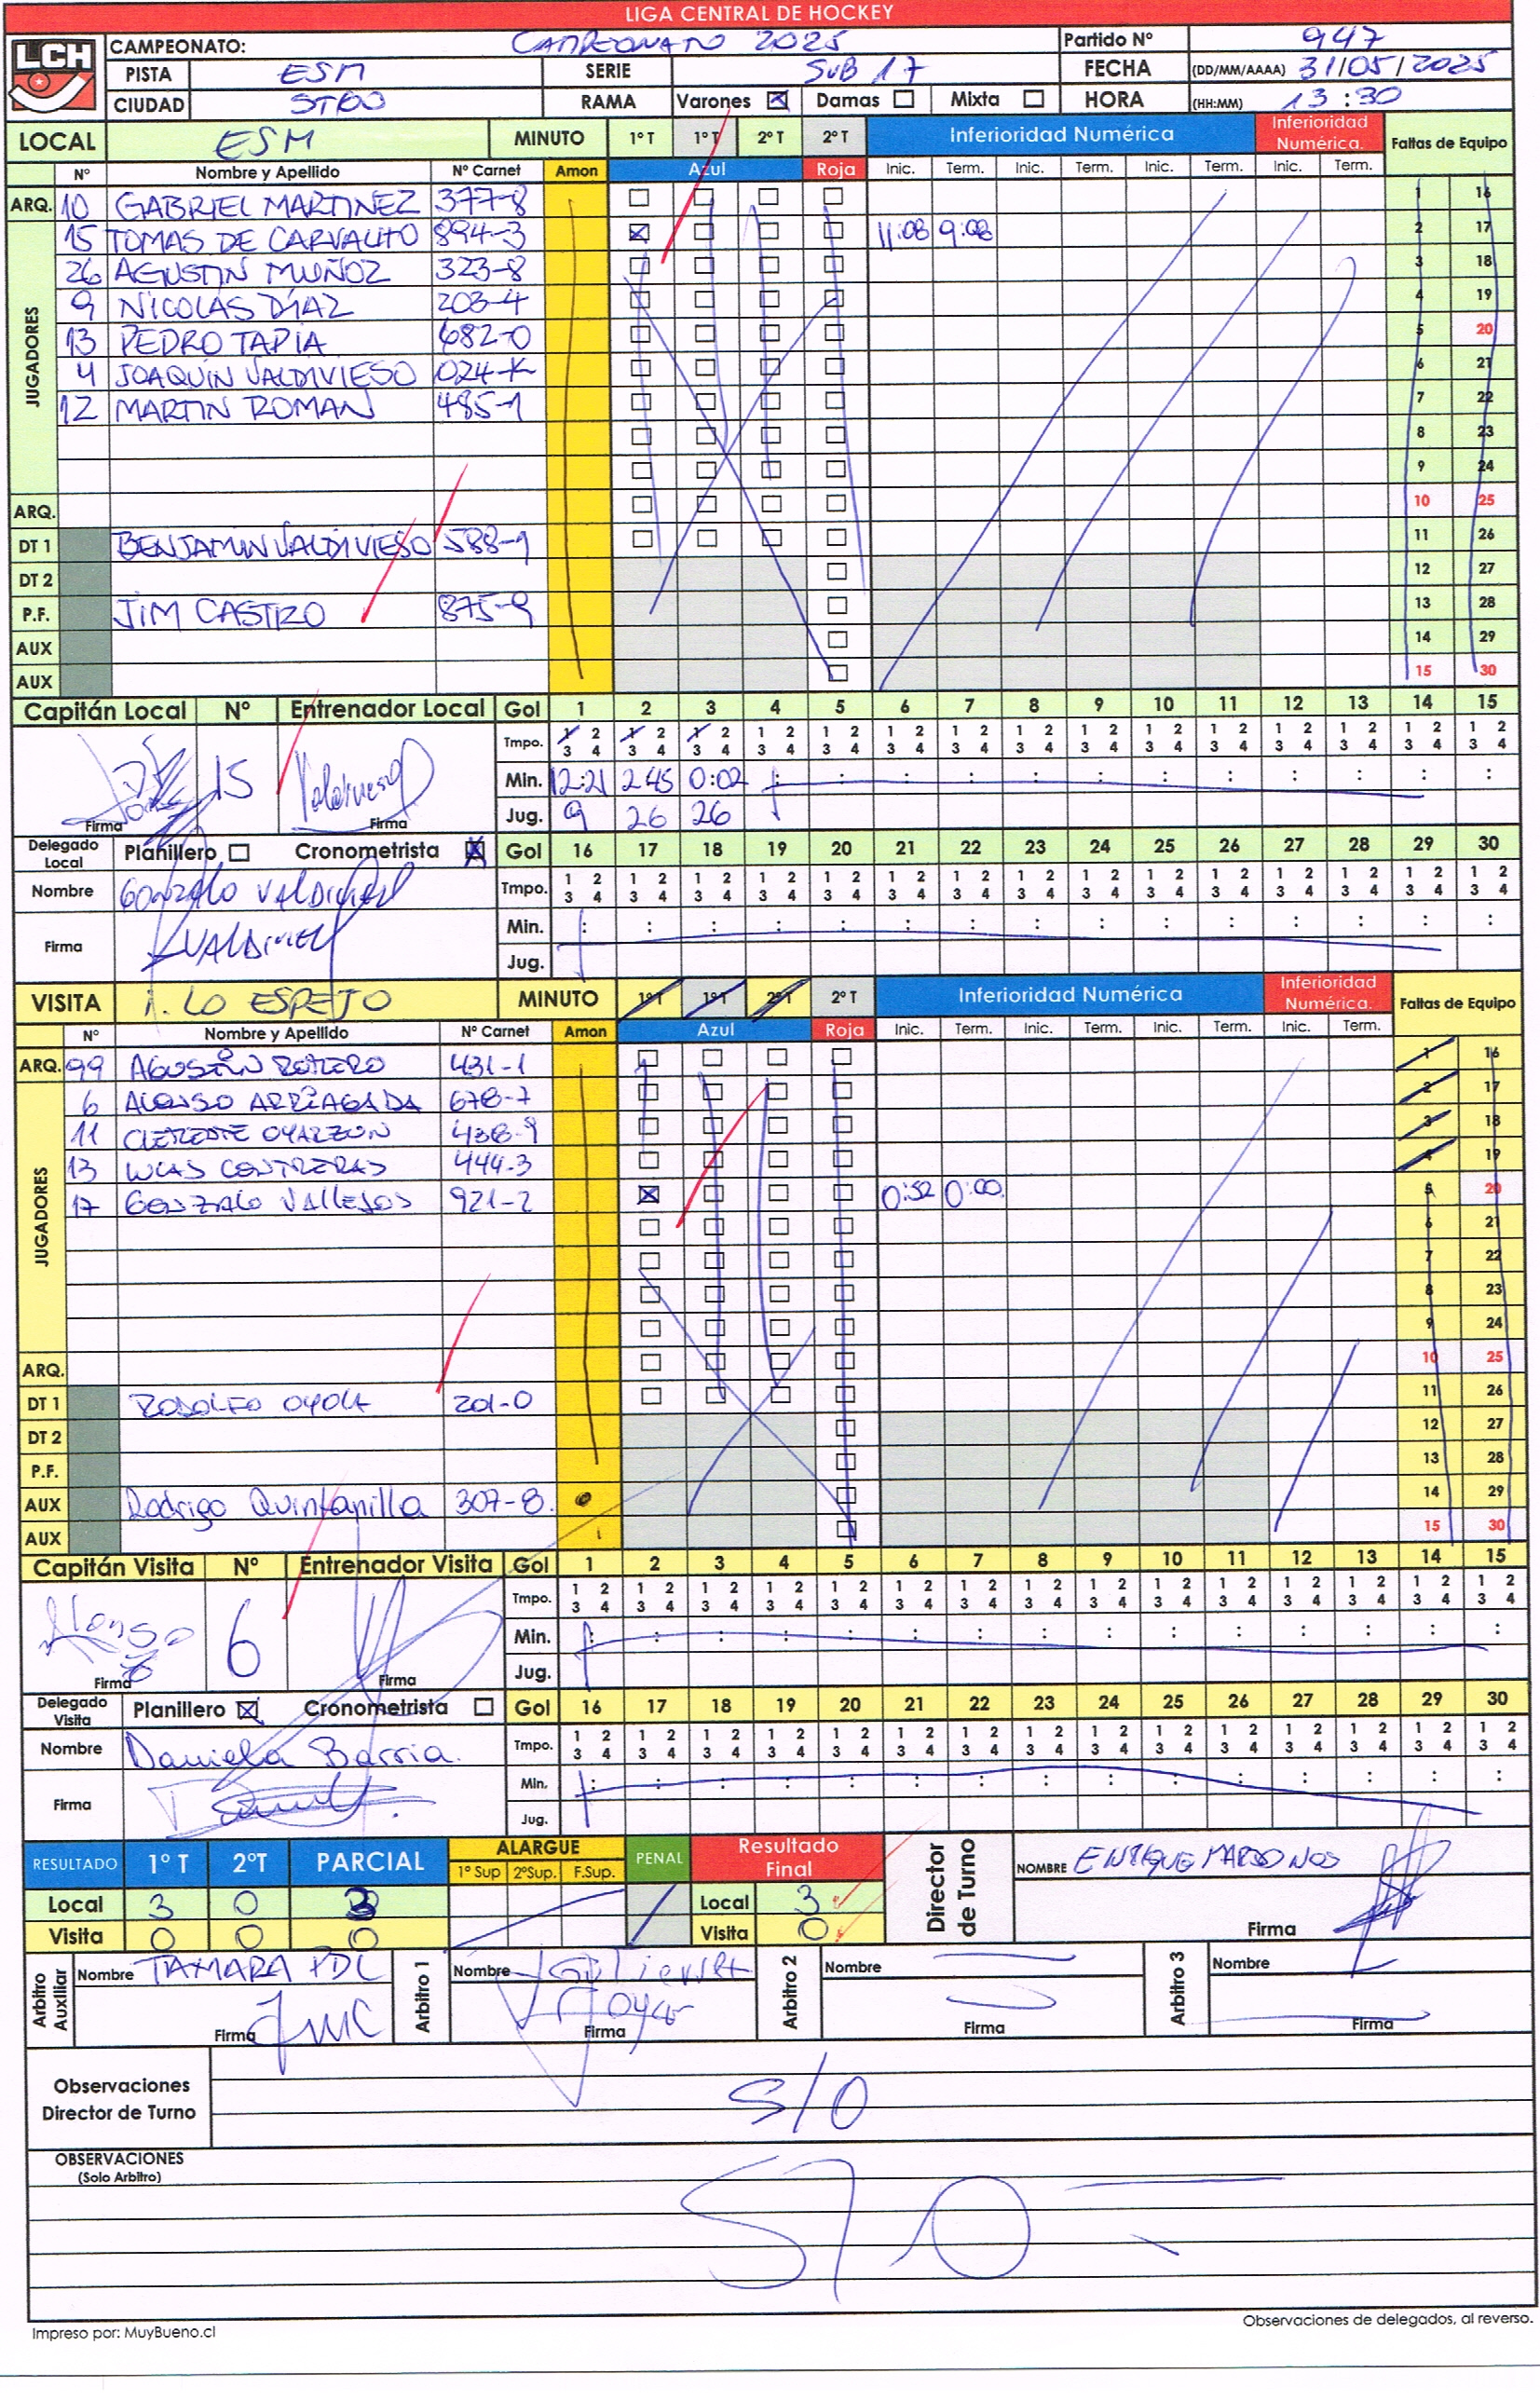 LIGA CENTRAL DE HOCKEY
LCH
CAMPEONATO: CAMPEONATO 2025 Partido Nº 947
PISTA ESM SERIE SUB 17 FECHA (DD/MM/AAAA) 31/05/2025
CIUDAD STGO RAMA Varones ☒ Damas ☐ Mixta ☐ HORA (HH:MM) 13:30
LOCAL ESM MINUTO 1º T 1º T 2º T 2º T Inferioridad Numérica Inferioridad Numérica. Faltas de Equipo
Nº Nombre y Apellido Nº Carnet Amon Azul Roja Inic. Term. Inic. Term. Inic. Term. Inic. Term.
ARQ. 10 GABRIEL MARTINEZ 377-8 1 16
JUGADORES
15 TOMAS DE CARVALHO 894-3 ☒ 11:08 9:08 2 17
26 AGUSTIN MUÑOZ 323-8 3 18
9 NICOLAS DÍAZ 203-4 4 19
13 PEDRO TAPIA 682-0 5 20
4 JOAQUÍN VALDIVIESO 024-K 6 21
12 MARTIN ROMAN 485-1 7 22
8 23
9 24
ARQ. 10 25
DT 1 BENJAMIN VALDIVIESO 588-1 11 26
DT 2 12 27
P.F. JIM CASTRO 875-9 13 28
AUX 14 29
AUX 15 30
Capitán Local Nº Entrenador Local Gol 1 2 3 4 5 6 7 8 9 10 11 12 13 14 15
Tmpo. 1 2 3 4 1 2 3 4 1 2 3 4 1 2 3 4 1 2 3 4 1 2 3 4 1 2 3 4 1 2 3 4 1 2 3 4 1 2 3 4 1 2 3 4 1 2 3 4 1 2 3 4 1 2 3 4 1 2 3 4
15 Valdivieso Min. 12:21 2:45 0:02
Firma Firma Jug. 9 26 26
Delegado Local Planillero ☐ Cronometrista ☒ Gol 16 17 18 19 20 21 22 23 24 25 26 27 28 29 30
Nombre Gonzalo Valdivieso Tmpo. 1 2 3 4 1 2 3 4 1 2 3 4 1 2 3 4 1 2 3 4 1 2 3 4 1 2 3 4 1 2 3 4 1 2 3 4 1 2 3 4 1 2 3 4 1 2 3 4 1 2 3 4 1 2 3 4 1 2 3 4
Firma Min.
Jug.
VISITA I. LO ESPEJO MINUTO 1º T 1º T 2º T 2º T Inferioridad Numérica Inferioridad Numérica. Faltas de Equipo
Nº Nombre y Apellido Nº Carnet Amon Azul Roja Inic. Term. Inic. Term. Inic. Term. Inic. Term.
ARQ. 99 AGUSTÍN BOTERO 431-1 1 16
JUGADORES
6 ALONSO ARRIAGADA 678-7 2 17
11 CLEMENTE OYARZUN 438-9 3 18
13 LUCAS CONTRERAS 444-3 4 19
17 GONZALO VALLEJOS 921-2 ☒ 0:52 0:00 5 20
6 21
7 22
8 23
9 24
ARQ. 10 25
DT 1 RODOLFO OYOLA 201-0 11 26
DT 2 12 27
P.F. 13 28
AUX Rodrigo Quintanilla 307-8. 14 29
AUX 15 30
Capitán Visita Nº Entrenador Visita Gol 1 2 3 4 5 6 7 8 9 10 11 12 13 14 15
Tmpo. 1 2 3 4 1 2 3 4 1 2 3 4 1 2 3 4 1 2 3 4 1 2 3 4 1 2 3 4 1 2 3 4 1 2 3 4 1 2 3 4 1 2 3 4 1 2 3 4 1 2 3 4 1 2 3 4 1 2 3 4
Alonso 6 Min.
Firma Firma Jug.
Delegado Visita Planillero ☒ Cronometrista ☐ Gol 16 17 18 19 20 21 22 23 24 25 26 27 28 29 30
Nombre Daniela Barria. Tmpo. 1 2 3 4 1 2 3 4 1 2 3 4 1 2 3 4 1 2 3 4 1 2 3 4 1 2 3 4 1 2 3 4 1 2 3 4 1 2 3 4 1 2 3 4 1 2 3 4 1 2 3 4 1 2 3 4 1 2 3 4
Firma Min.
Jug.
RESULTADO 1º T 2ºT PARCIAL ALARGUE 1º Sup 2ºSup. F.Sup. PENAL Resultado Final Director de Turno NOMBRE ENRIQUE MARDONES
Local 3 0 3 Local 3
Visita 0 0 0 Visita 0 Firma
Arbitro Auxiliar Nombre TAMARA PDC Arbitro 1 Nombre Arbitro 2 Nombre Arbitro 3 Nombre
Firma Firma Firma Firma
Observaciones Director de Turno S/O
OBSERVACIONES
(Solo Arbitro)
S/O
Impreso por: MuyBueno.cl Observaciones de delegados, al reverso.